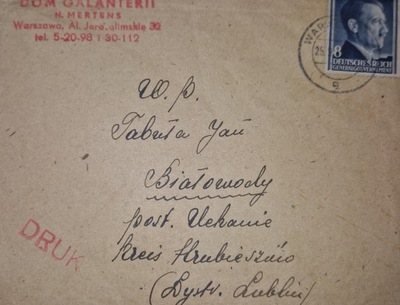 DOM GALANTERII
N. MERTENS
Warszawa, Al. Jerozolimskie 32
tel. 5-20-98 i 30-112
WAR
25.
8
DEUTSCHES REICH
GENERALGOUVERNEMENT
W. P.
Tabuła Jan
Białowody
post. Uchanie
Kreis Hrubieszów
(Dystr. Lublin)
DRUK